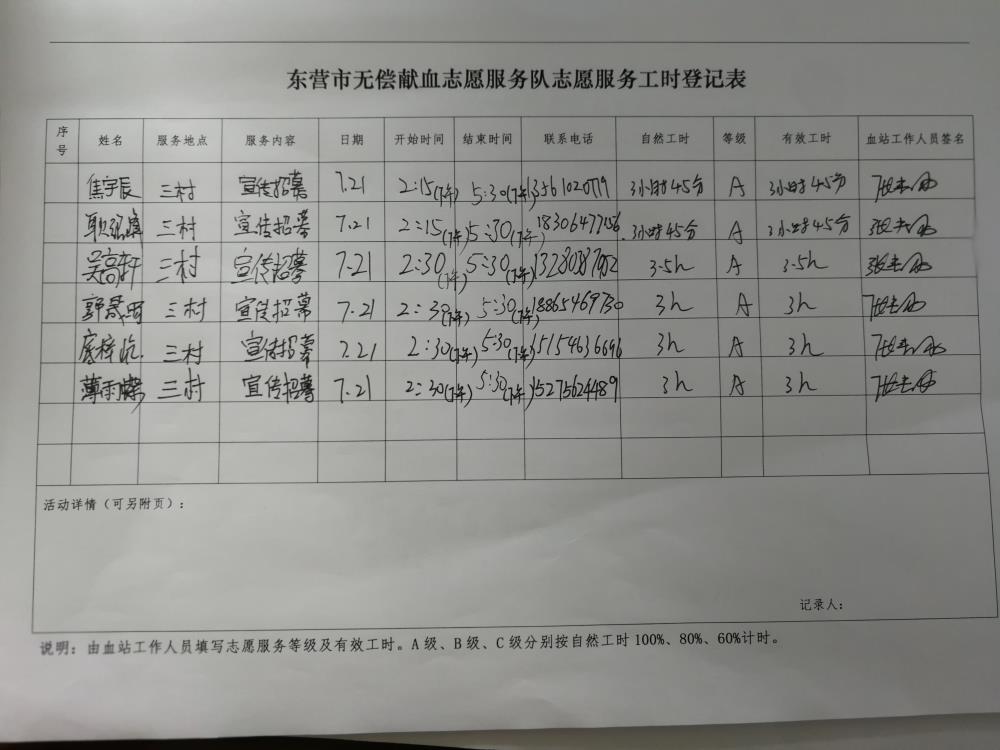 东营市无偿献血志愿服务队志愿服务工时登记表
序号 姓名 服务地点 服务内容 日期 开始时间 结束时间 联系电话 自然工时 等级 有效工时 血站工作人员签名
焦宇辰 三村 宣传招募 7.21 2:15(下午) 5:30(下午) 3小时45分 A 3小时45分
三村 宣传招募 7.21 2:15(下午) 5:30(下午) 3小时45分 A 3小时45分
吴高轩 三村 宣传招募 7.21 2:30(下午) 5:30(下午) 3.5h A 3.5h
三村 宣传招募 7.21 2:30(下午) 5:30(下午) 18865469730 3h A 3h
三村 宣传招募 7.21 2:30(下午) 5:30(下午) 3h A 3h
三村 宣传招募 7.21 2:30(下午) 5:30(下午) 15275624489 3h A 3h
活动详情（可另附页）：
记录人：
说明：由血站工作人员填写志愿服务等级及有效工时。A 级、B 级、C 级分别按自然工时 100%、80%、60%计时。